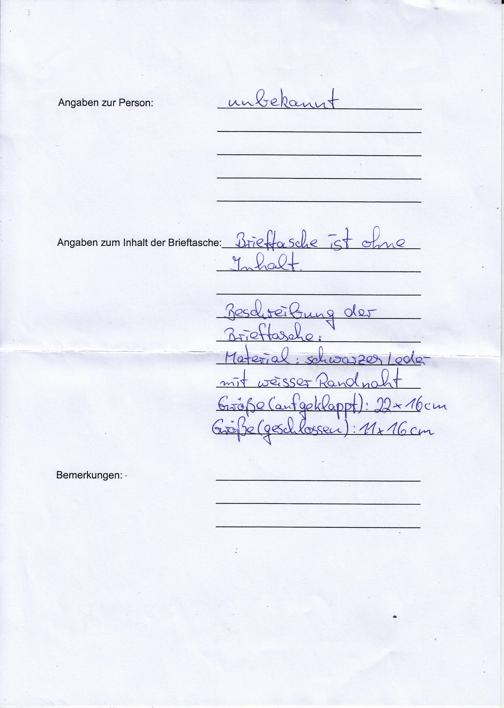 Angaben zur Person: unbekannt
Angaben zum Inhalt der Brieftasche: Brieftasche ist ohne
Inhalt.
Beschreibung der
Brieftasche:
Material: schwarzes Leder
mit weisser Randnaht
Größe (aufgeklappt): 22 x 16 cm
Größe (geschlossen): 11 x 16 cm
Bemerkungen: